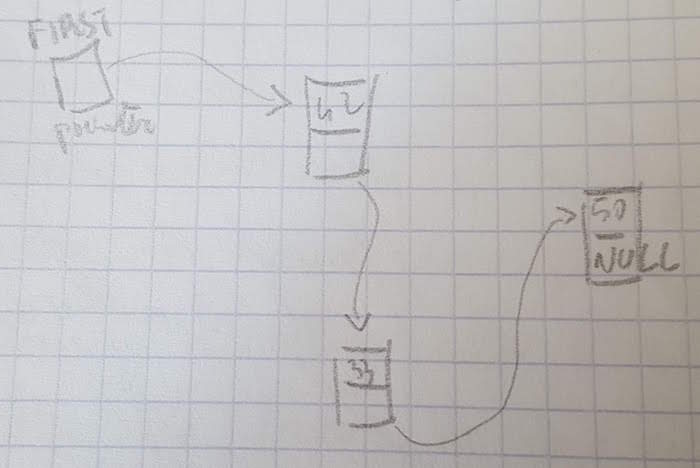 FIRST
pointer
42
33
50
NULL